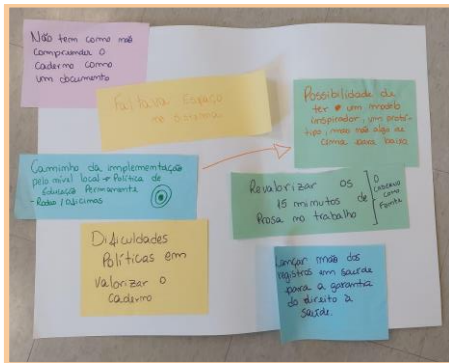 Não tem como não
compreender o
caderno como
um documento
Faltava Espaço
no sistema
Possibilidade de
ter um modelo
inspirador, um protó-
tipo, mas não algo de
cima para baixo
Caminho da implementação
pelo nível local → Política de
Educação Permanente
- Rodas / oficinas
Revalorizar os
15 minutos de
Prosa no trabalho
O
caderno como
Fonte
Dificuldades
Políticas em
valorizar o
caderno
Lançar mão dos
registros em saúde
para a garantia
do direito à
saúde.